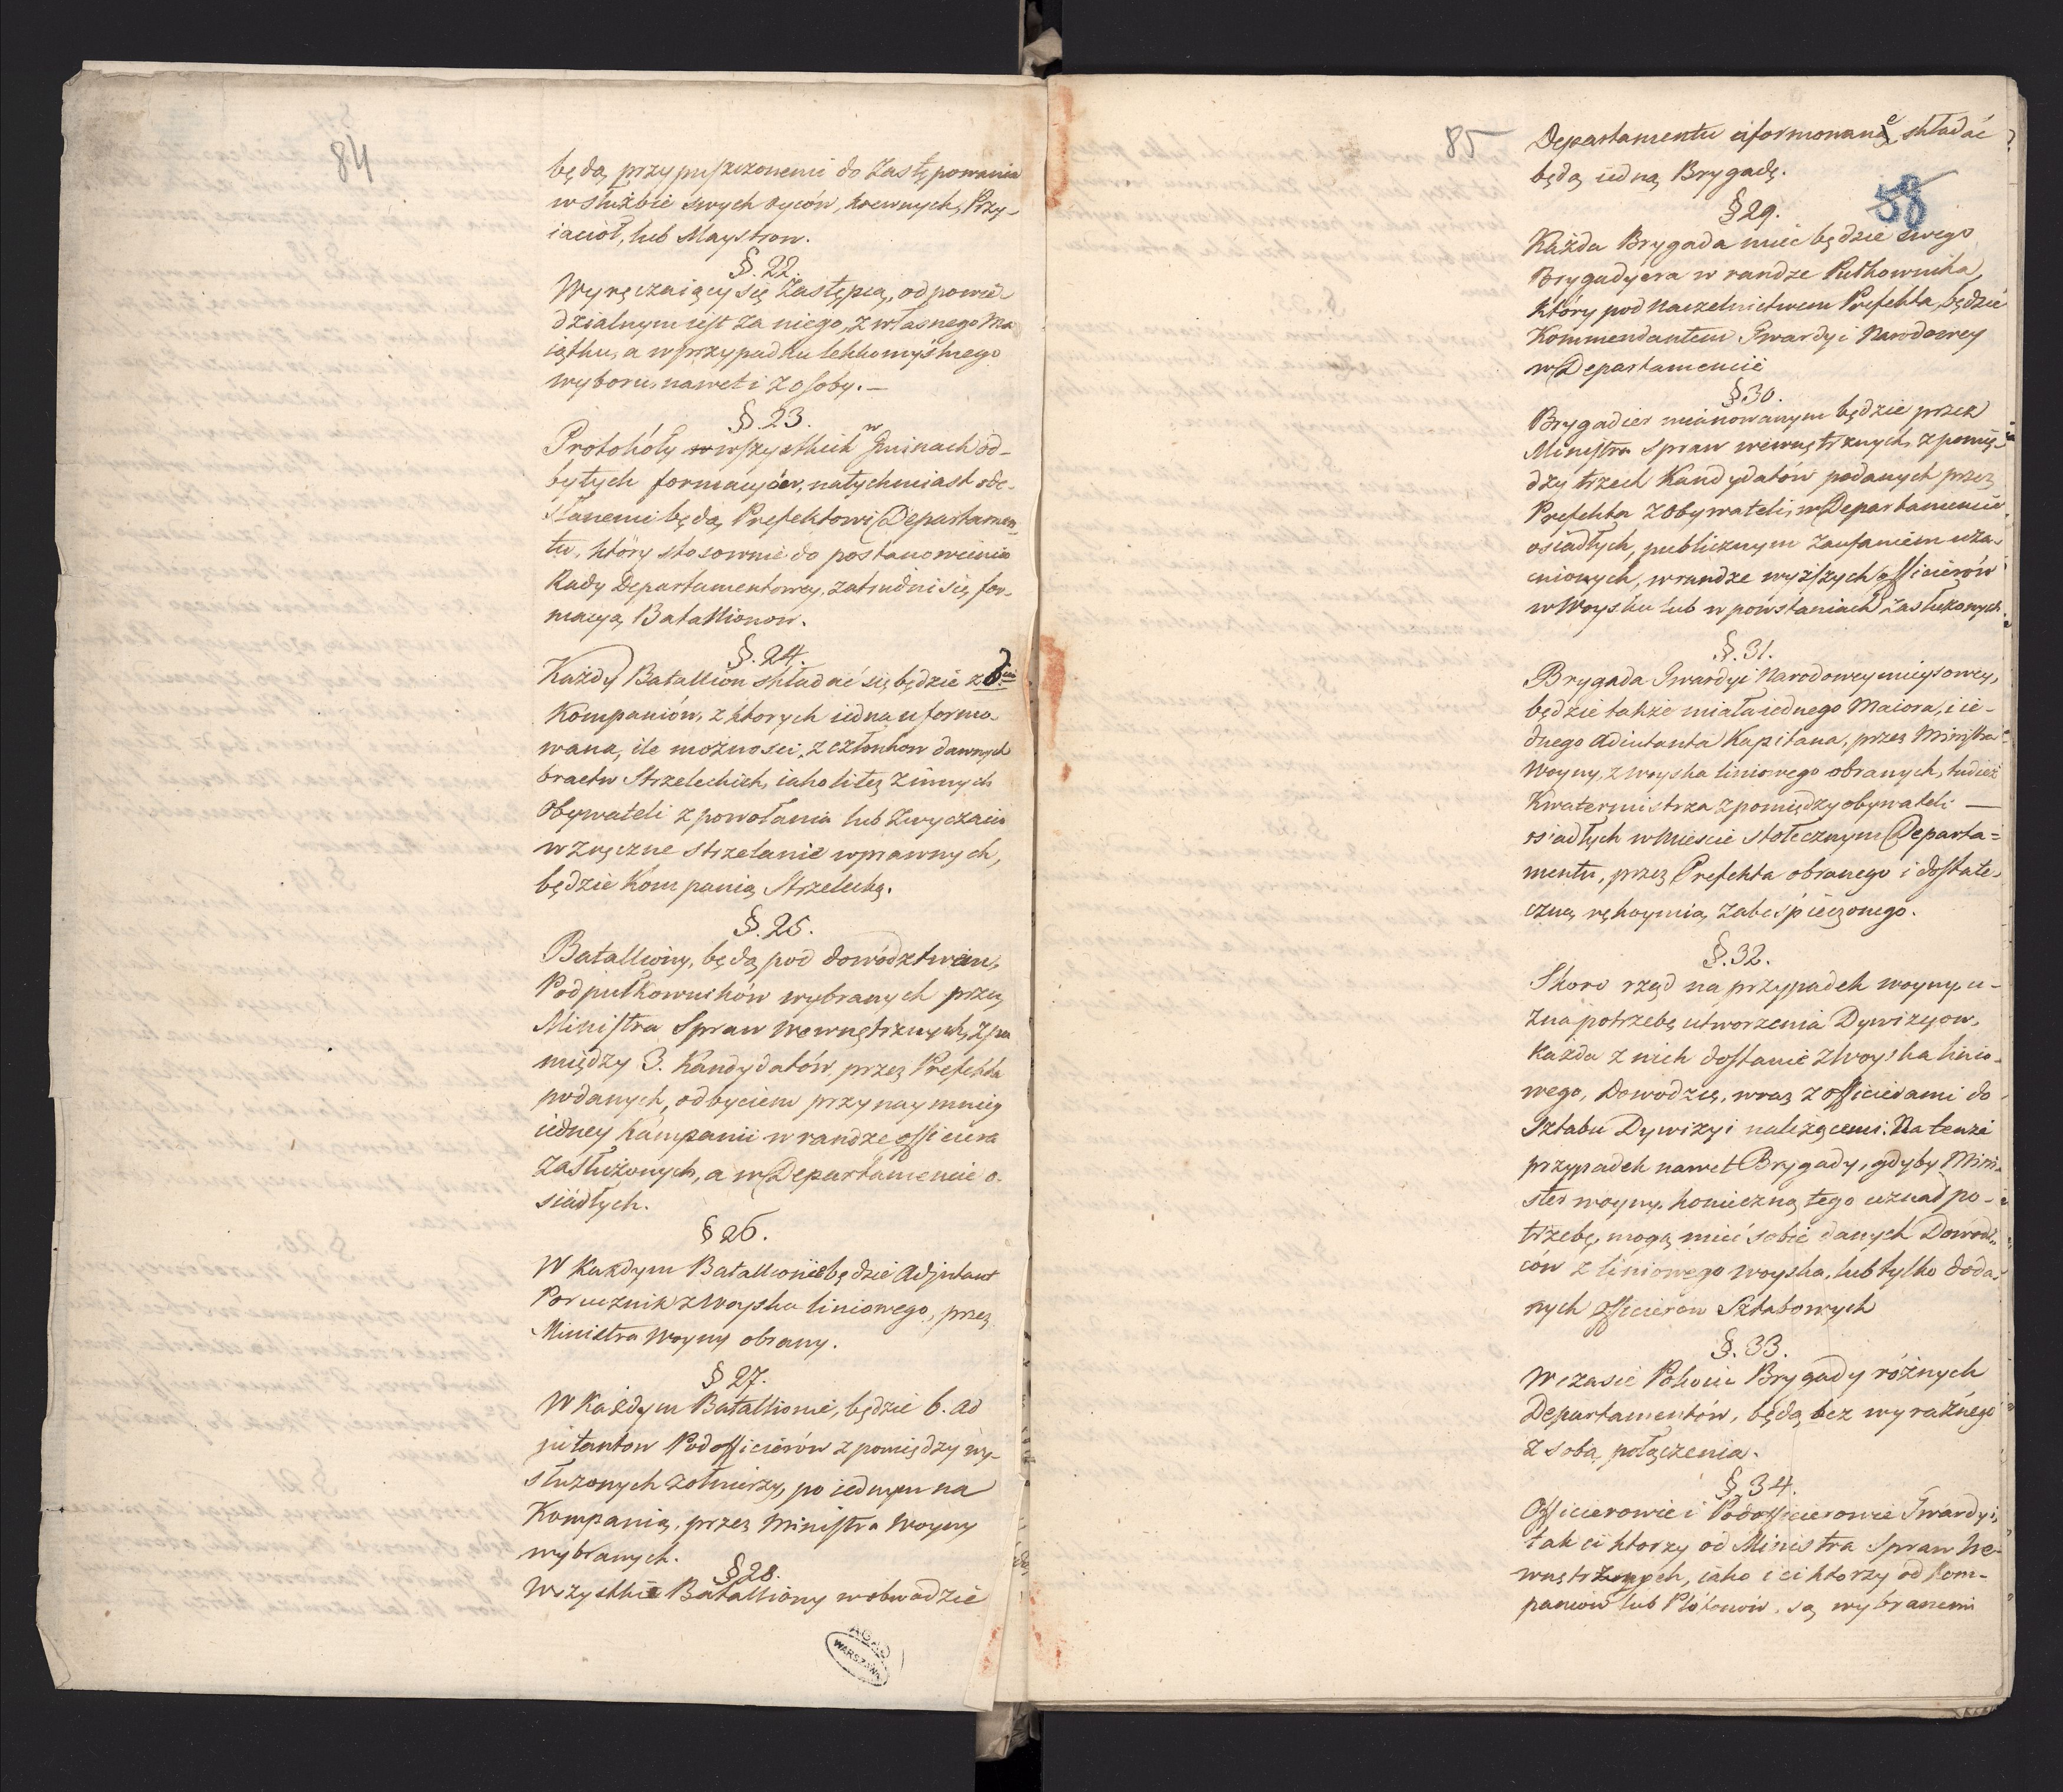 84
będą przypuszczonemi do zastępowania
w służbie swych oyców, krewnych, Przy-
iaciół, lub Maystrow.
§. 22.
Wyręczaiący się Zastępcą, odpowie-
dzialnym iest za niego, z własnego Ma
iątku, a w przypadku lekkomyślnego
wyboru, nawet i z osoby. —
§. 23.
Protokóły w wszystkich w Gminach od-
bytych formacyów, natychmiast ode-
słanemi będą Prefektowi Departamen-
tu, który stosownie do postanowienia
Rady Departamentowey, zatrudni się for-
macyą Batallionow.
§. 24.
Każdy Batallion składać się będzie z 6ciu
Kompaniów, z ktorych iedna uformo-
wana, ile możnosci, z członkow dawnych
bractw Strzeleckich, iako liteż z innych
Obywateli z powołania lub zwyczaiu
w zręczne strzelanie wprawnych,
będzie Kompanią Strzelecką.
§. 25.
Batalliony, będą pod dowództwem,
Podpułkowników wybranych przez
Ministra Spraw Wewnętrznych, z po
między 3. Kandydatów przez Prefekta
podanych, odbyciem przynaymniey
iedney kampanii w randze officiera
zasłużonych, a w Departamencie o-
siadłych.
§ 26.
W Każdym Batallionie będzie Adjutant
Porucznik z Woyska liniowego, przez
Ministra Woyny obrany.
§ 27.
W Każdym Batallionie, będzie 6. Ad
jutantow Podofficierów z pomiędzy wy-
służonych żołnierzy, po iednym na
Kompanią, przez Ministra Woyny
wybranych.
§ 28.
Wszystkie Batalliony w obwodzie
AGAD
WARSZAWA
85
Departamentu uformowane składać
będą iedną Brygadę.
58
§ 29.
Każda Brygada mieć będzie swego
Brygadyera w randze Pułkownika,
który pod Naczelnictwem Prefekta, będzie
Kommendantem Gwardyi Narodowey
w Departamencie
§ 30.
Brygadier mianowanym będzie przez
Ministra Spraw wewnętrznych, z pomię-
dzy trzech Kandydatów podanych przez
Prefekta z Obywateli, w Departamencie
osiadłych, publicznym zaufaniem uza-
cnionych, w randze wyższych officierów
w Woysku lub w powstaniach zasłużonych.
§. 31.
Brygada Gwardyi Narodowey mieyscowey,
będzie także miała iednego Maiora, i ie-
dnego Adiutanta Kapitana, przez Ministra
Woyny, z woyska liniowego obranych, tudzież
Kwatermistrza z pomiędzy obywateli —
osiadłych w Mieście stołecznym Departa=
mentu, przez Prefekta obranego i dostate-
czną rękoymią zabespieczonego.
§. 32.
Skoro rząd na przypadek woyny u-
zna potrzebę utworzenia Dywizyow,
Każda z nich dostanie z Woyska linio-
wego, Dowodzcę, wraz z officierami do
Sztabu Dywizyi należącemi. Na tenże
przypadek nawet Brygady, gdyby Mini-
ster woyny, konieczną tego uznał po-
trzebę, mogą mieć sobie danych Dowodz-
ców z liniowego woyska, lub tylko doda-
nych Officierow Sztabowych
§. 33.
W czasie Pokoiu Brygady różnych
Departamentów, będą bez wyraźnego
z sobą połączenia.
§. 34.
Officierowie i Podofficierowie Gwardyi,
tak ci ktorzy od Ministra Spraw We-
wnętrznych, iako i ci ktorzy od Kom-
paniow lub Plótonów, są wybranemi